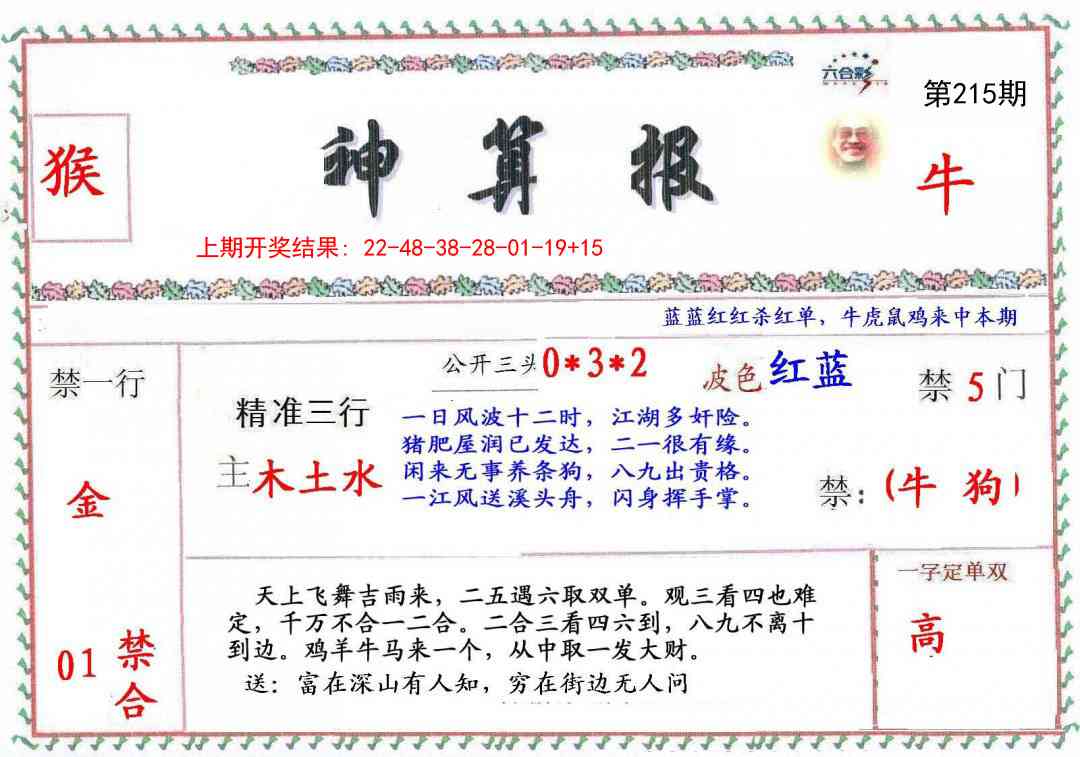 六合彩
第215期
猴
神算报
牛
上期开奖结果：22-48-38-28-01-19+15
蓝蓝红红杀红单，牛虎鼠鸡来中本期
禁一行
公开三头0*3*2
波色红蓝
禁5门
精准三行
一日风波十二时，江湖多奸险。
猪肥屋润已发达，二一很有缘。
主木土水
闲来无事养条狗，八九出贵格。
一江风送溪头舟，闪身挥手掌。
禁：(牛 狗)
金
一字定单双
天上飞舞吉雨来，二五遇六取双单。观三看四也难
定，千万不合一二合。二合三看四六到，八九不离十
到边。鸡羊牛马来一个，从中取一发大财。
高
01禁合
送：富在深山有人知，穷在街边无人问